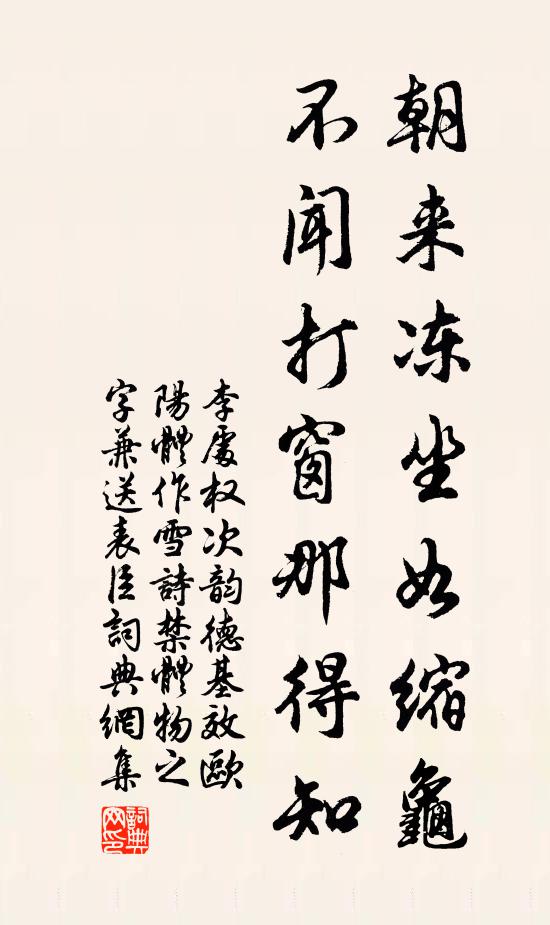 朝来冻坐如缩龜
不聞打窗那得知
李處权次韵德基效歐
陽體作雪詩禁體物之
字兼送表臣詞典網集
詞典網印